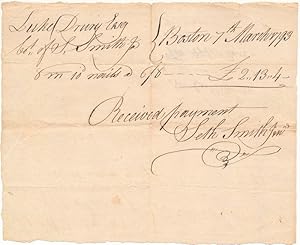 Luke Drury Esq
Boston 7th March 1793
bot. of S. Smith Jr
8 m 10 nails @ 6/8 — £ 2.13.4
Received payment
Seth Smith Junr